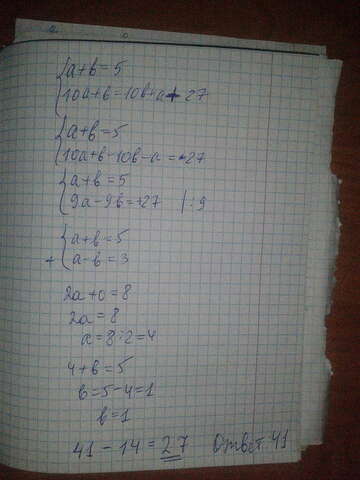 a+b=5
10a+b=10b+a+27
a+b=5
10a+b-10b-a=27
a+b=5
9a-9b=27 |:9
a+b=5
+ a-b=3
2a+0=8
2a=8
a=8:2=4
4+b=5
b=5-4=1
b=1
41-14=27 Ответ 41